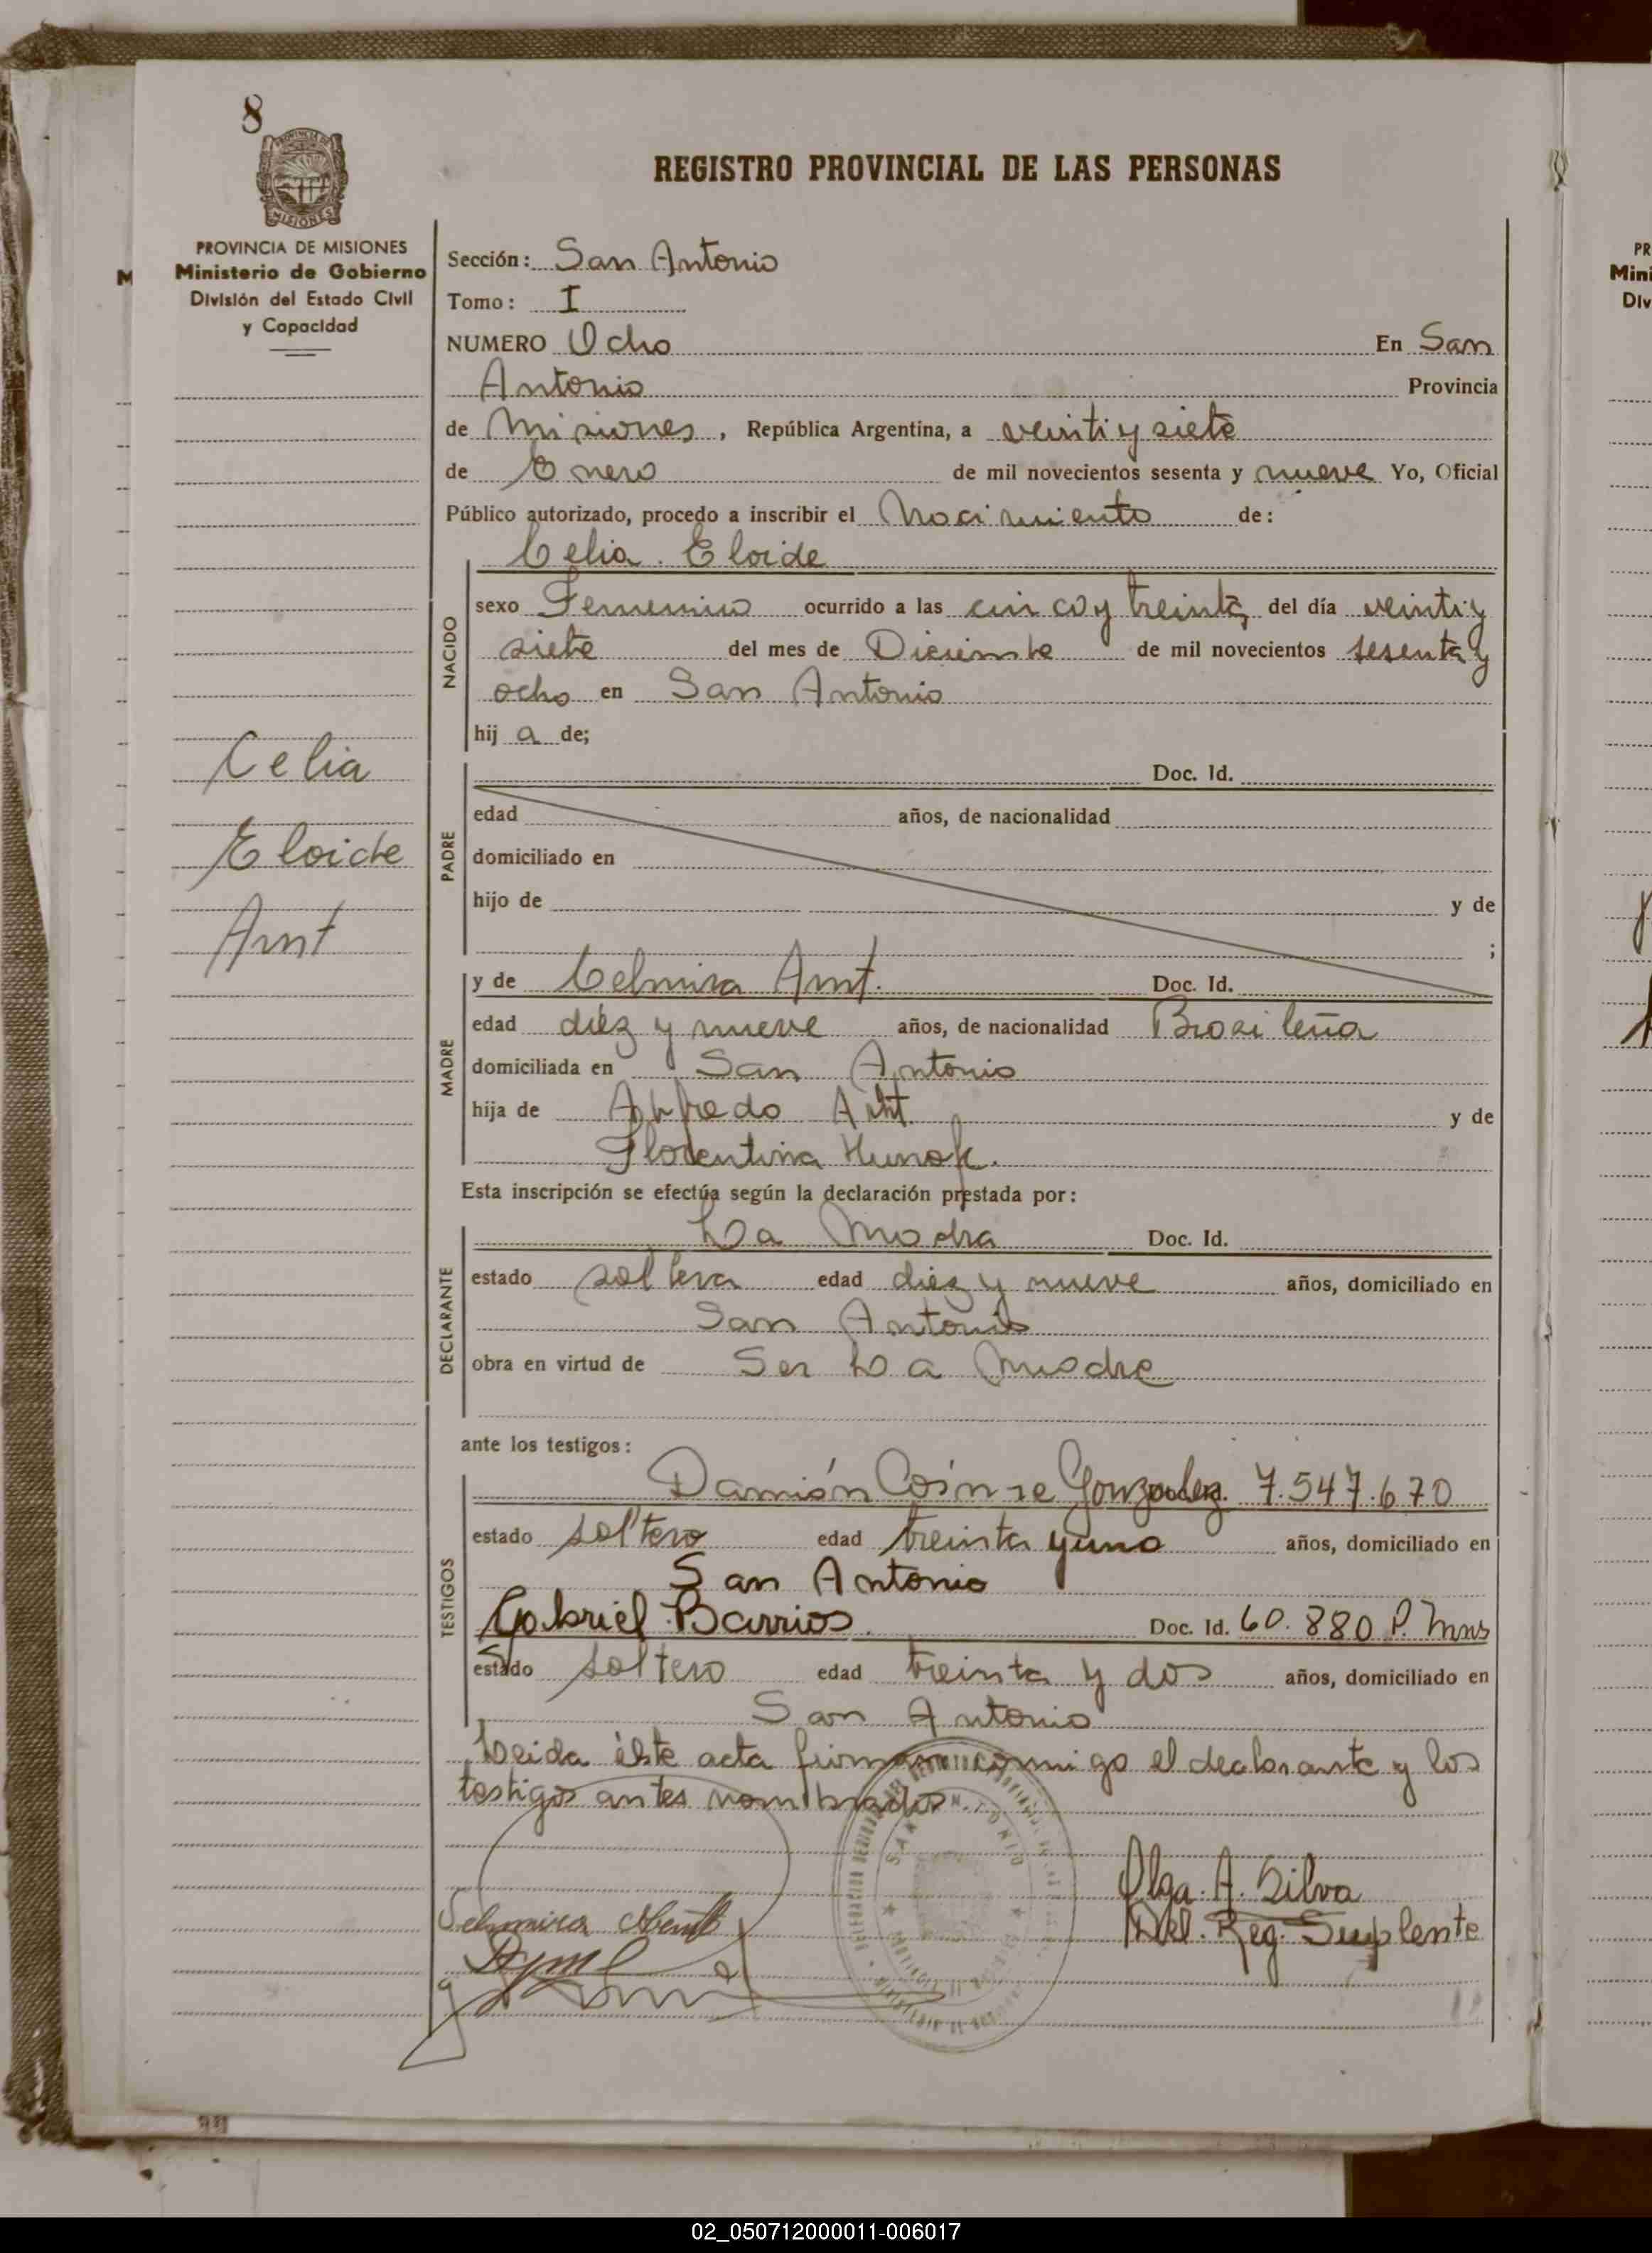 8
PROVINCIA DE MISIONES
Ministerio de Gobierno
División del Estado Civil
y Capacidad
REGISTRO PROVINCIAL DE LAS PERSONAS
Sección: San Antonio
Tomo: I
NUMERO Ocho En San
Antonio Provincia
de Misiones, República Argentina, a veinti y siete
de Enero de mil novecientos sesenta y nueve Yo, Oficial
Público autorizado, procedo a inscribir el Nacimiento de:
Celia. Eloide
NACIDO
sexo Femenino ocurrido a las cinco y treinta del día veinti y
siete del mes de Diciembe de mil novecientos sesenta y
ocho en San Antonio
hij a de;
Celia
Eloide
Arnt
PADRE
Doc. Id.
edad años, de nacionalidad
domiciliado en
hijo de y de
;
MADRE
y de Celmira Arnt. Doc. Id.
edad diéz y nueve años, de nacionalidad Brasileña
domiciliada en San Antonio
hija de Alfredo y de
Florentina
Esta inscripción se efectúa según la declaración prestada por:
DECLARANTE
La Madra Doc. Id.
estado soltera edad diez y nueve años, domiciliado en
San Antonio
obra en virtud de Ser La Madre
ante los testigos:
TESTIGOS
Damión Gonzalez. 7.547.670
estado soltero edad treinta y uno años, domiciliado en
San Antonio
Gabriel Barrios. Doc. Id. 60.880 P. Mns
estado soltero edad treinta y dos años, domiciliado en
San Antonio
Leida éste acta firman conmigo el declarante y los
testigos antes nombrados.
SAN ANTONIO
Olga. A. Silva
Del. Reg. Suplente
Selmira
02_050712000011-006017